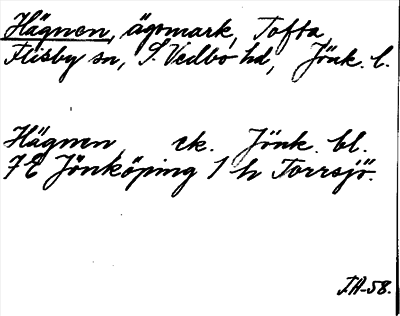 Hägnen, ägomark, Tofta,
Flisby sn, S. Vedbo hd, Jönk. l.
Hägnen ek. Jönk. bl.
7E Jönköping 1 h Torrsjö.
FA-58.